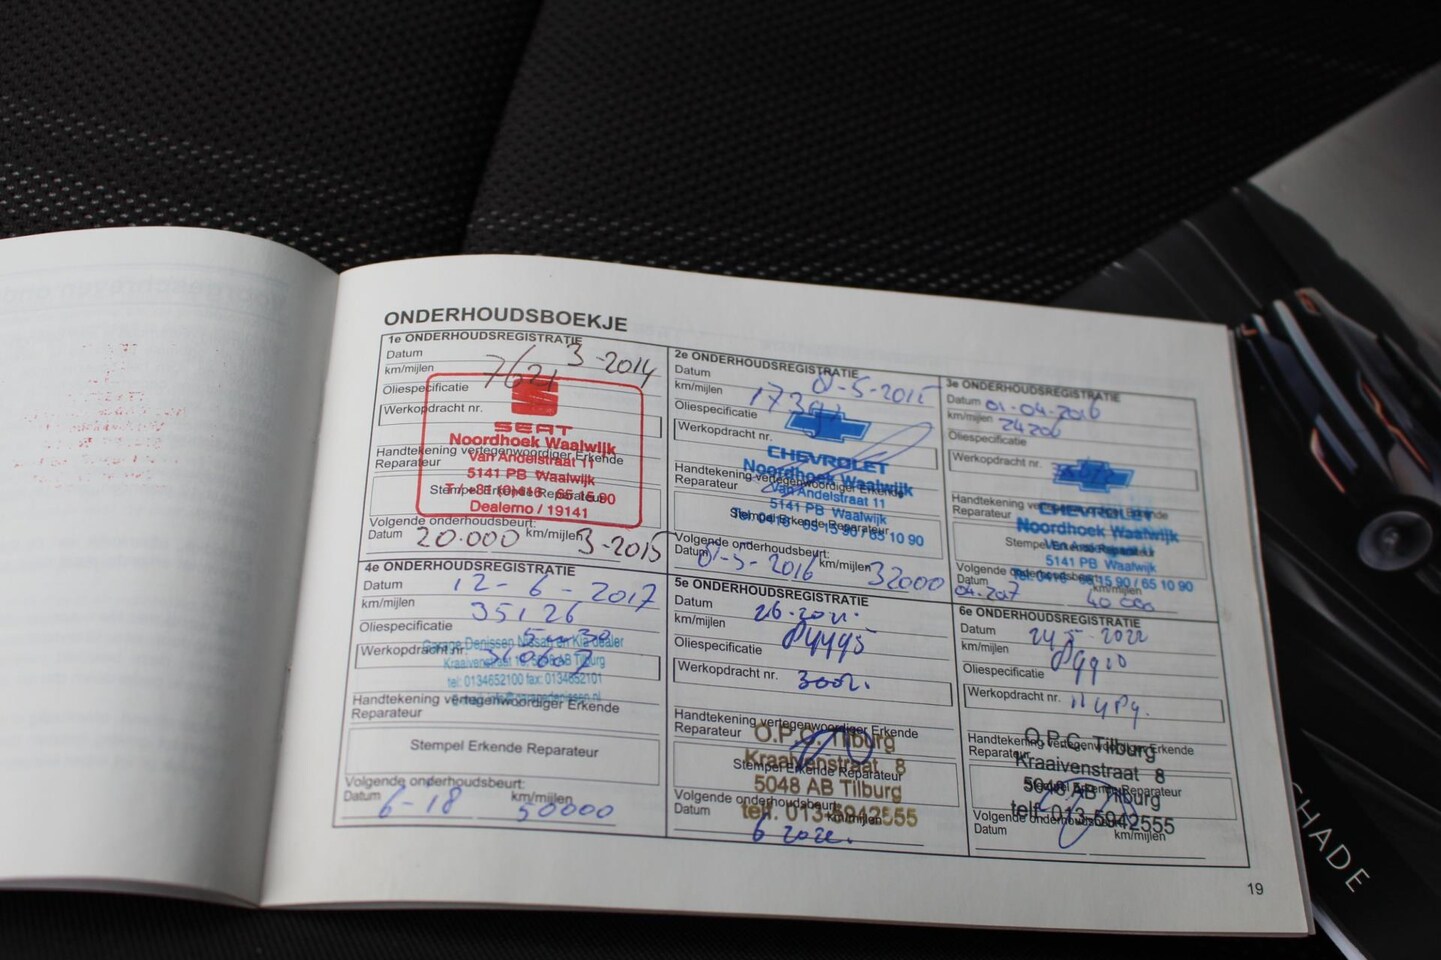 ONDERHOUDSBOEKJE
1e ONDERHOUDSREGISTRATIE
Datum 3-2014
km/mijlen 7621
Oliespecificatie
Werkopdracht nr.
SEAT
Noordhoek Waalwijk
Handtekening vertegenwoordiger Erkende
Reparateur
van Andelstraat 11
5141 PB Waalwijk
Stempel Erkende Reparateur
Dealerno / 19141
Volgende onderhoudsbeurt:
Datum 20.000 km/mijlen 3-2015
2e ONDERHOUDSREGISTRATIE
Datum 01-5-2015
km/mijlen
Oliespecificatie
Werkopdracht nr.
CHEVROLET
Noordhoek Waalwijk
Handtekening vertegenwoordiger Erkende
Reparateur
Van Andelstraat 11
5141 PB Waalwijk
Stempel Erkende Reparateur
Tel. 0416 - 65 15 90 / 65 10 90
Volgende onderhoudsbeurt:
Datum 01-5-2016 km/mijlen 32000
3e ONDERHOUDSREGISTRATIE
Datum 01-04-2016
km/mijlen 24206
Oliespecificatie
Werkopdracht nr.
Handtekening vertegenwoordiger Erkende
Reparateur
CHEVROLET
Noordhoek Waalwijk
5141 PB Waalwijk
Tel. 0416 - 65 15 90 / 65 10 90
Volgende onderhoudsbeurt:
Datum 04-2017 km/mijlen 40 000
4e ONDERHOUDSREGISTRATIE
Datum 12-6-2017
km/mijlen 35126
Oliespecificatie 5w30
Garage Denissen Nissan en Kia dealer
Werkopdracht nr.
Kraaivenstraat 5048 AB Tilburg
tel: 0134652100 fax: 0134652101
Handtekening vertegenwoordiger Erkende
Reparateur
Stempel Erkende Reparateur
Volgende onderhoudsbeurt:
Datum 6-18 km/mijlen 50000
5e ONDERHOUDSREGISTRATIE
Datum
km/mijlen
Oliespecificatie
Werkopdracht nr.
Handtekening vertegenwoordiger Erkende
Reparateur
O.P.C. Tilburg
Kraaivenstraat 8
Stempel Erkende Reparateur
5048 AB Tilburg
Volgende onderhoudsbeurt:
telf. 013-5942555
Datum 6 2022. km/mijlen
6e ONDERHOUDSREGISTRATIE
Datum 24 5-2022
km/mijlen
Oliespecificatie
Werkopdracht nr.
Handtekening vertegenwoordiger Erkende
Reparateur
O.P.C. Tilburg
Kraaivenstraat 8
Stempel Erkende Reparateur
5048 AB Tilburg
telf. 013-5942555
Volgende onderhoudsbeurt:
Datum km/mijlen
19
HADE